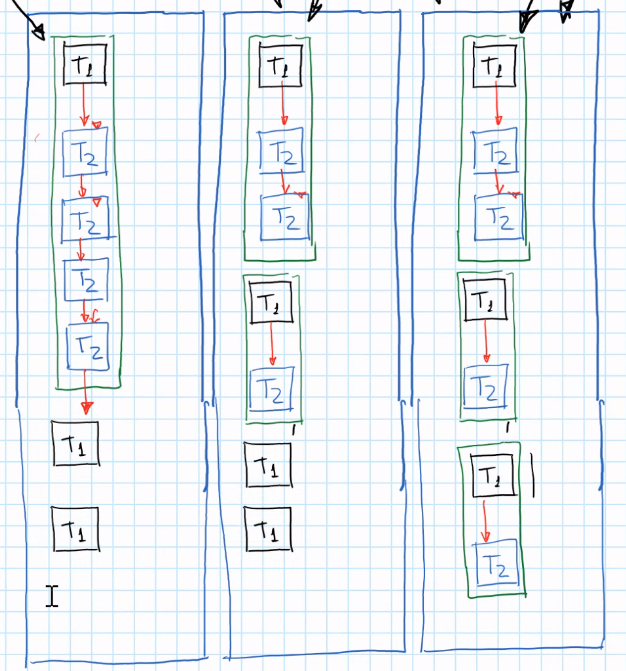 T1
T2
T2
T2
T2
T1
T1
T1
T2
T2
T1
T2
T1
T1
T1
T2
T2
T1
T2
T1
T2